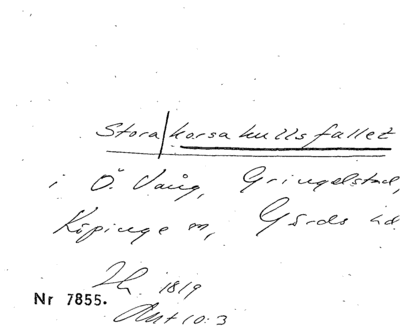 Stora/korsakullsfallet
i Ö. Vång, Gringelstad,
Köpinge sn, Gärds hd
1819
Nr 7855.
Akt 10:3